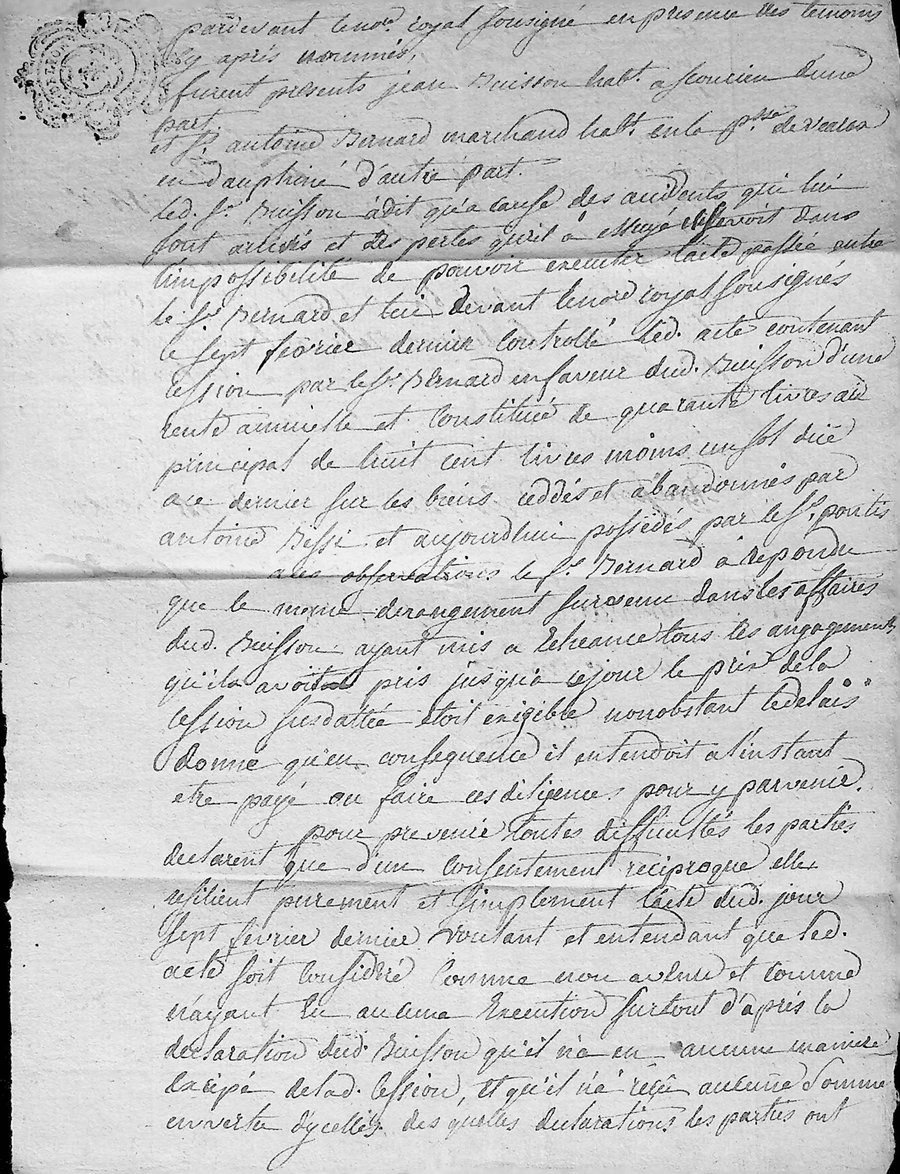 pardevant le no.re royal sousigné en presence des temoins
cy aprés nommés,
furent presents jean Buisson hab.t a d'une
part
et S.r antoine Bernard marchand hab.t en la p.sse de
en dauphiné d'autre part.
led. S.r Buisson à dit qu'a cause des accidents qui lui
sont arrivés et des pertes qu'il à essuyé dans
l'impossibilité de pouvoir executer l'acte passé entre
le S.r Bernard et lui devant le no.re royal sousignés
le sept fevrier dernier controllé led. acte contenant
cession par le S.r Bernard en faveur dud. Buisson d'une
rente annuelle et constituée de quarante livres au
principal de huit cent livres moins un sol düe
a ce dernier sur les biens ceddés et abandonnés par
antoine Bessi et aujourdhui possédés par le S.r pontis
a ces observations le S.r Bernard à repondu
que le meme derangement survenu dans les affaires
dud. Buisson ayant mis a echeance tous les angagements
qu'il avoit pris jusqu'a ce jour le prix de la
cession susdattée etoit exigible nonobstant le delais
donné qu'en consequence il entendoit a l'instant
etre payé ou faire ces diligences pour y parvenir.
pour prevenir toutes difficultés les parties
declarent que d'un consentement reciproque elles
resilient purement et simplement l'acte dud. jour
sept fevrier dernier voulant et entendant que led.
acte soit consideré comme non avenu et comme
n'ayant eu aucune execution surtout d'aprés la
declaration dud. Buisson qu'il n'a en aucune maniere
excipé de lad. cession, et qu'il n'a reçu aucune somme
en vertu d'ycelle, des quelles declarations les parties ont